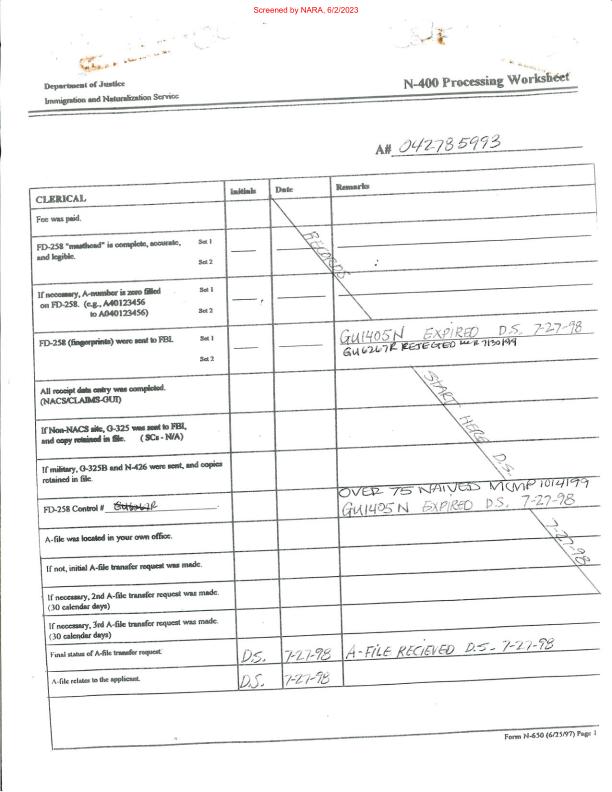 Screened by NARA, 6/2/2023
Department of Justice
Immigration and Naturalization Service
N-400 Processing Worksheet
A# 042785993
CLERICAL Initials Date Remarks
Fee was paid.
FD-258 "masthead" is complete, accurate, Set 1
and legible. Set 2
RECORDS
If necessary, A-number is zero filled Set 1
on FD-258. (e.g., A40123456 Set 2
to A040123456)
FD-258 (fingerprints) were sent to FBI. Set 1 GU1405N EXPIRED D.S. 7-27-98
GU6267R REJECTED 7/30/99
Set 2
All receipt data entry was completed.
(NACS/CLAIMS-GUI)
START HERE D.S.
7-27-98
If Non-NACS site, G-325 was sent to FBI,
and copy retained in file. (SCs - N/A)
If military, G-325B and N-426 were sent, and copies
retained in file.
OVER 75 WAIVED MCMP 10/4/99
FD-258 Control # GU6267R GU1405N EXPIRED D.S. 7-27-98
A-file was located in your own office.
If not, initial A-file transfer request was made.
If necessary, 2nd A-file transfer request was made.
(30 calendar days)
If necessary, 3rd A-file transfer request was made.
(30 calendar days)
Final status of A-file transfer request. D.S. 7-27-98 A-FILE RECIEVED D.S. 7-27-98
A-file relates to the applicant. D.S. 7-27-98
Form N-650 (6/25/97) Page 1